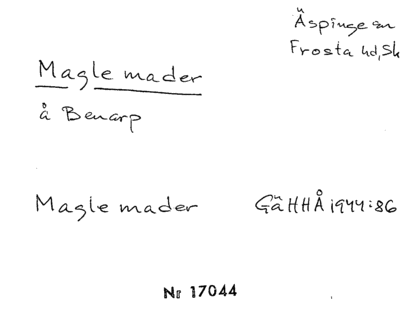 Äspinge sn
Frosta hd, Sk
Magle mader
å Benarp
Magle mader GäHHÅ 1944:86
Nr 17044